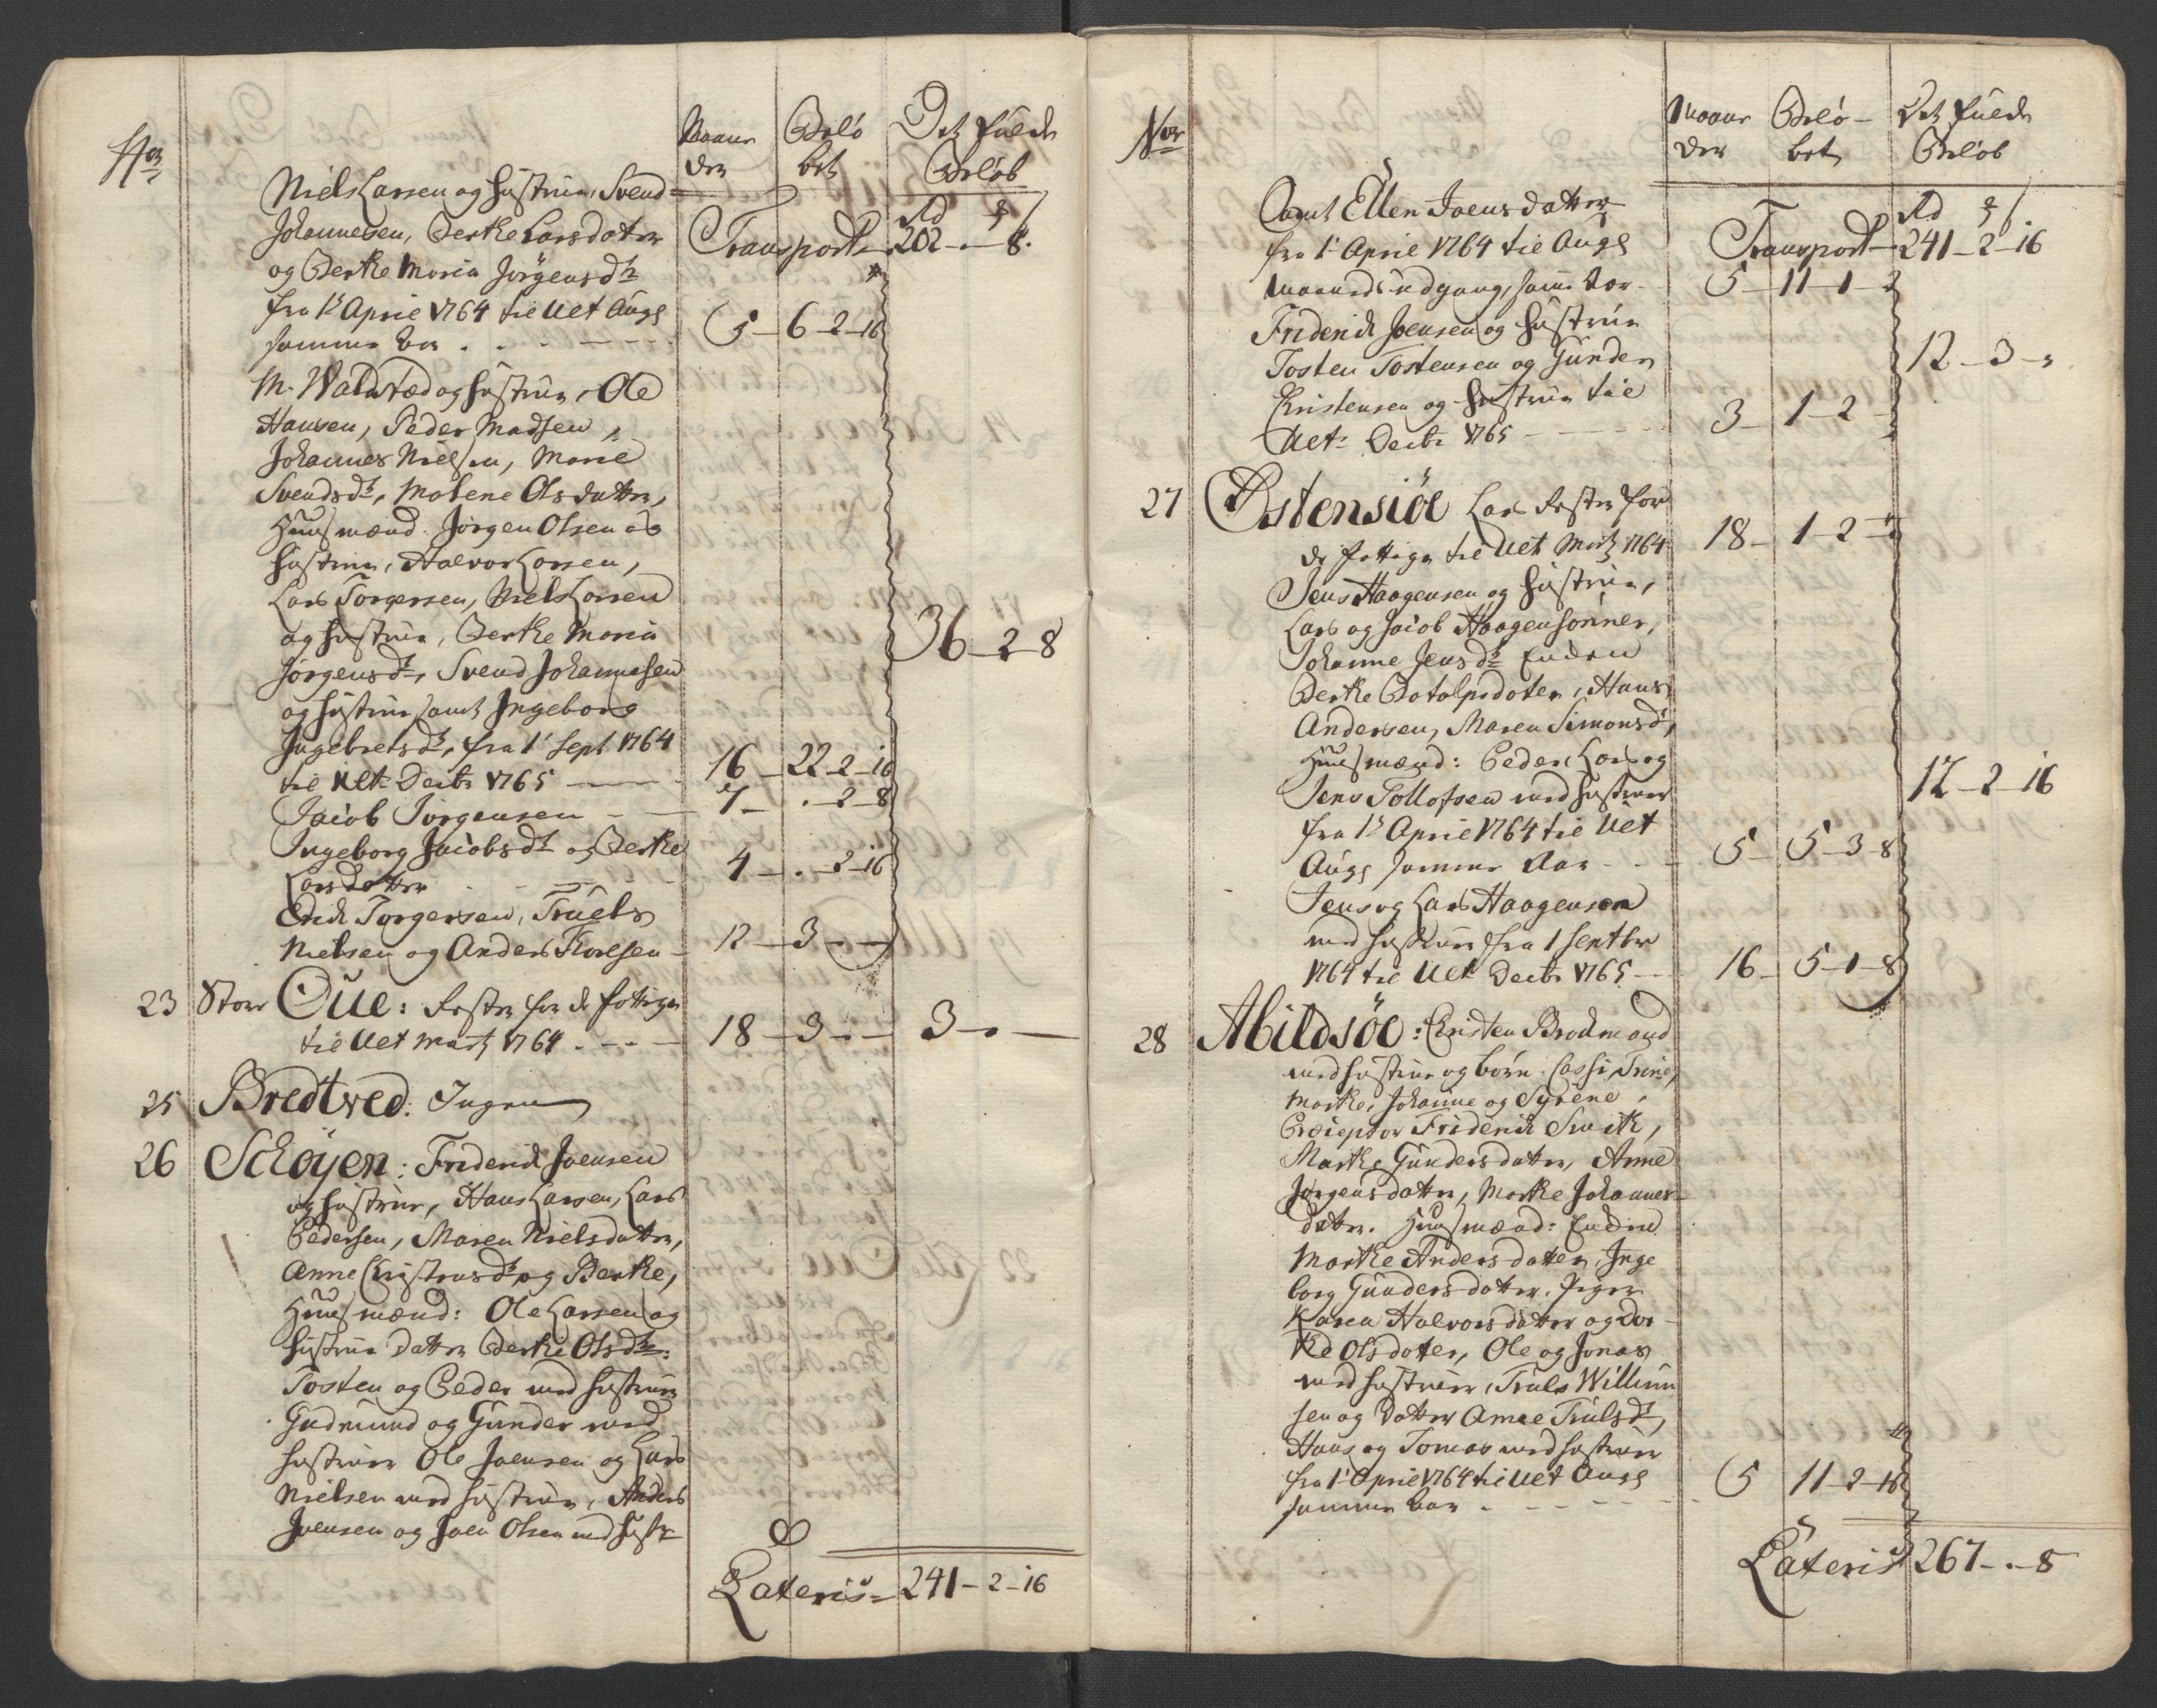 No
Maane
der
Belö
bet
Det fulde
Beløb
Niels Larsen og Hustrue, Svend
Johannesen, Berthe Larsdatter
og Berthe Maria Jörgensdr
fra 1 April 1764 til Ult Augs
samme Aar
Rd
Transport 202 - . - 8
5 - 6 - 2 - 16
M. Waldsted og Hustrue, Ole
Hansen, Peder Madsen,
Johannes Nielsen, Marie
Svendsdr, Malene Olsdatter,
Huusmænd. Jörgen Olsen og
Hustrue, Halvor Larsen,
Lars Torgersen, Niels Larsen
og Hustrue, Berthe Maria
Jörgensdr, Svend Johannesen
og Hustrue samt Ingeborg
Ingebretsdr, fra 1 Sept 1764
til Ult Decbr 1765
16 - 22 - 2 - 16
36 - 2 - 8
Jacob Jörgensen
7 - . - 2 - 8
Ingeborg Jacobsdr og Berthe
Larsdatter
4 - . - 2 - 16
Erich Torgersen, Truels
Nielsen og Anders
12 - 3 - . -
23 Store Oue: Rester for de fattige
til Ult Martz 1764
18 - 3 - . -
3 - . -
25 Bredtved: Ingen
26 Schöyen: Friderich Joensen
og Hustrue, Hans Larsen, Lars
Pedersen, Maren Nielsdatter,
Anne og Berthe,
Huusmænd: Ole Larsen og
Hustrue Datter Berthe Olsdr:
Tosten og Peder med Hustruer
Gudmund og Gunder med
Hustruer Ole Joensen og Lars
Nielsen med Hustrue, Anders
Joensen og Joen Olsen med Hustr
Lateris 241 - 2 - 16
No
Maane
der
Belö-
bet
Det fulde
Beløb
Samt Ellen Joensdatter
fra 1 April 1764 til Augs
Maaneds udgang, samme Aar
Rd
Transport 241 - 2 - 16
5 - 11 - 1 - 2
Friderich Joensen og Hustrue
Tosten Tostensen og Gunder
Christensen og Hustrue til
Ult Decbr 1765
3 - 1 - 2 -
12 - 3 -
27 Østensiöe Lars Rester for
de fattige til Ult Martz 1764
18 - 1 - 2 -
Jens Haagensen og Hustrue,
Lars og Jacob Haagensönner,
Johanne Jensdr Enken
Berthe Botolpsdater, Hans
Andersen, Maren Simonsdr,
Huusmænd: Peder, Lars og
Jens Tollofsen med Hustruer
fra 1 April 1764 til Ult
Augs samme Aar
5 - 5 - 3 - 8
12 - 2 - 16
Jens og Lars Haagensen
med Hustruer fra 1 Septbr
1764 til Ult Decbr 1765
16 - 5 - 1 - 8
28 Abildsöe: Christen Brochmand
med Hustrue og börn: Cassi, Trine,
Marthe, Johanne og Syrene,
Præceptor Friderich Smith,
Marthe Gundersdatter, Anne
Jörgensdatter, Marthe Johannes-
datter. Huusmænd: Enken
Marthe Andersdatter, Inge
borg Gundersdatter. Piger
Karen Halvorsdatter og Dor-
the Olsdater, Ole og Jonas
med Hustruer, Truls Willum
sen og Datter Anne Trulsdr,
Hans og Tomas med Hustruer
fra 1 April 1764 til Ult Augs
samme Aar
5 11 - 2 - 16
Lateris 267 - . - 8